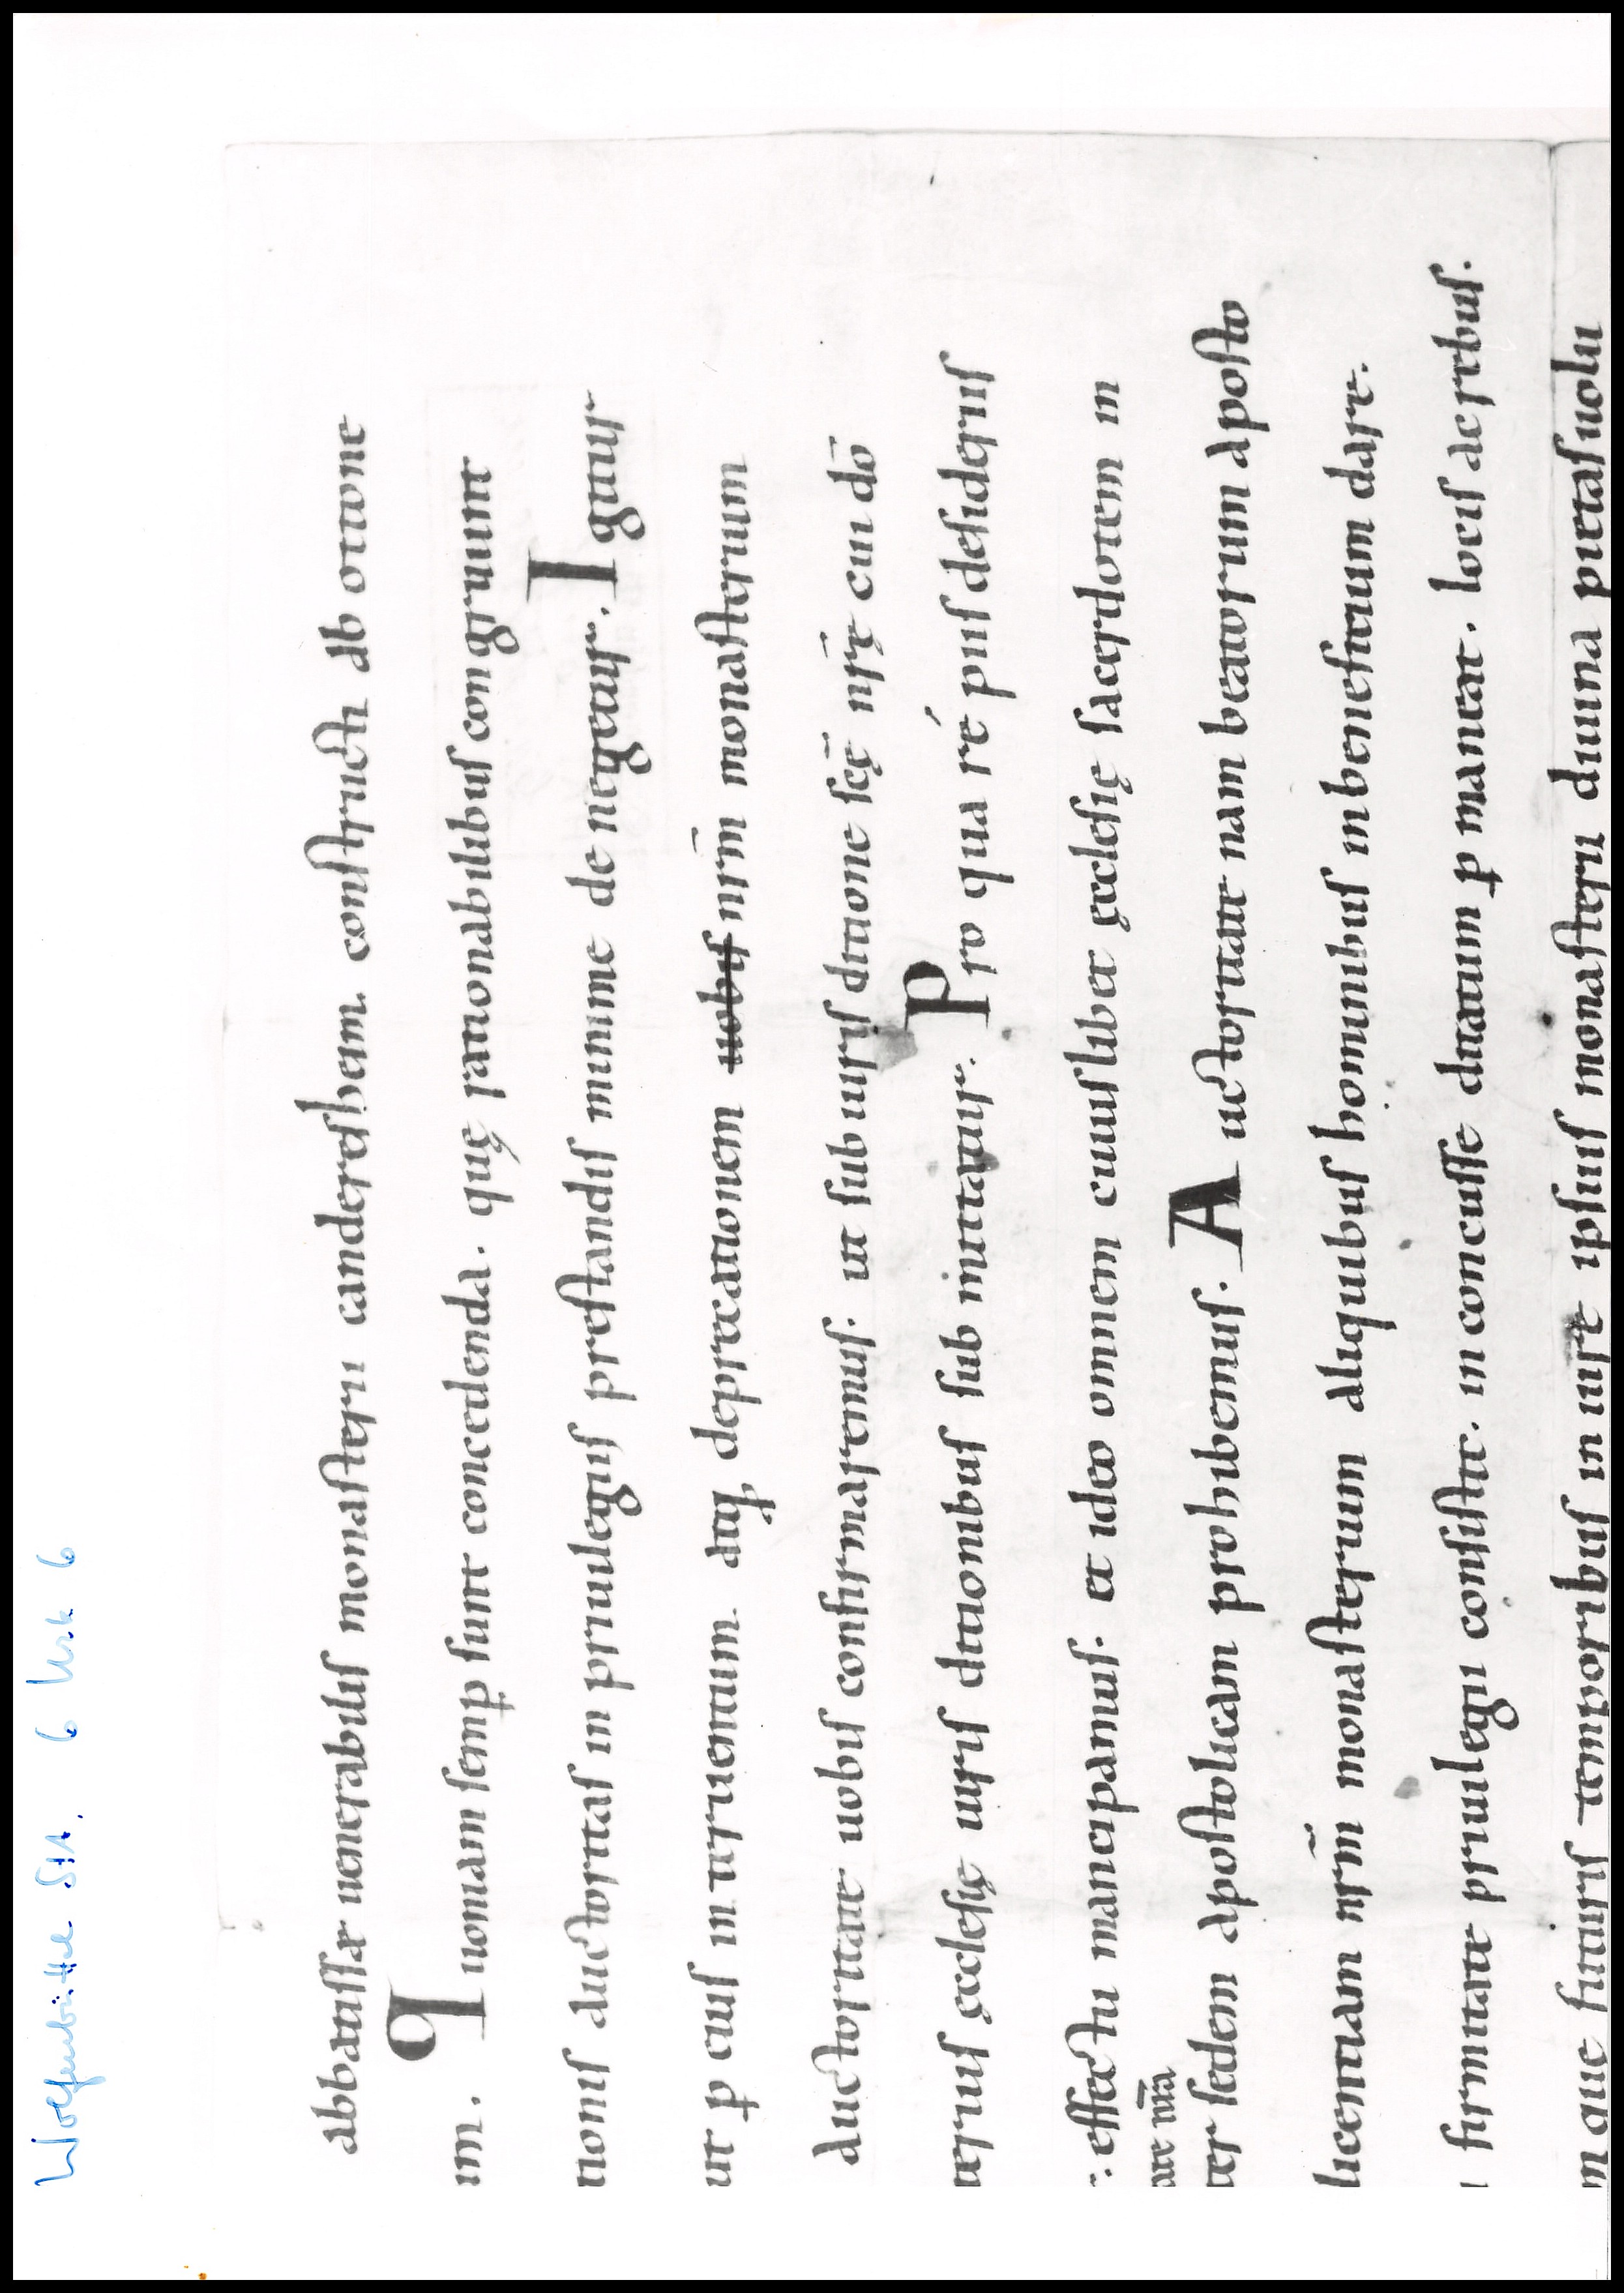 Wolfenbüttel StA. 6 Urk 6
abbatissæ uenerabilis monasterii canderesheim. constructi ab ottone
im. Quoniam semp̱ sunt concedenda. quę rationabilibus congruunt
tionis auctoritas in priuilegiis prestandis minime denegetur. Igitur
ut p̱ eius interuentum atq; deprecationem uobis nr̄m monasterium
auctoritate uobis confirmaremus. ut sub iuris ditione scę̄ nr̄ę cui dō
terius ęcclesię iuris ditionibus sub mittatur. Pro qua ré piis desideriis
: effectu mancipamus. et ideo omnem cuiuslibet ęcclesię sacerdotem in
are nīīa
ter sedem apostolicam prohibemus. A uctoritate nam beatorum aposto
licentiam nr̄m monasterium aliquibus hominibus in benefitium dare.
firmitate priuilegii consistat. in concusse ditatum p̱ maneat. locis ac rebus.
m que futuris temporibus in iure ipsius monasterii diuina pietas uolu